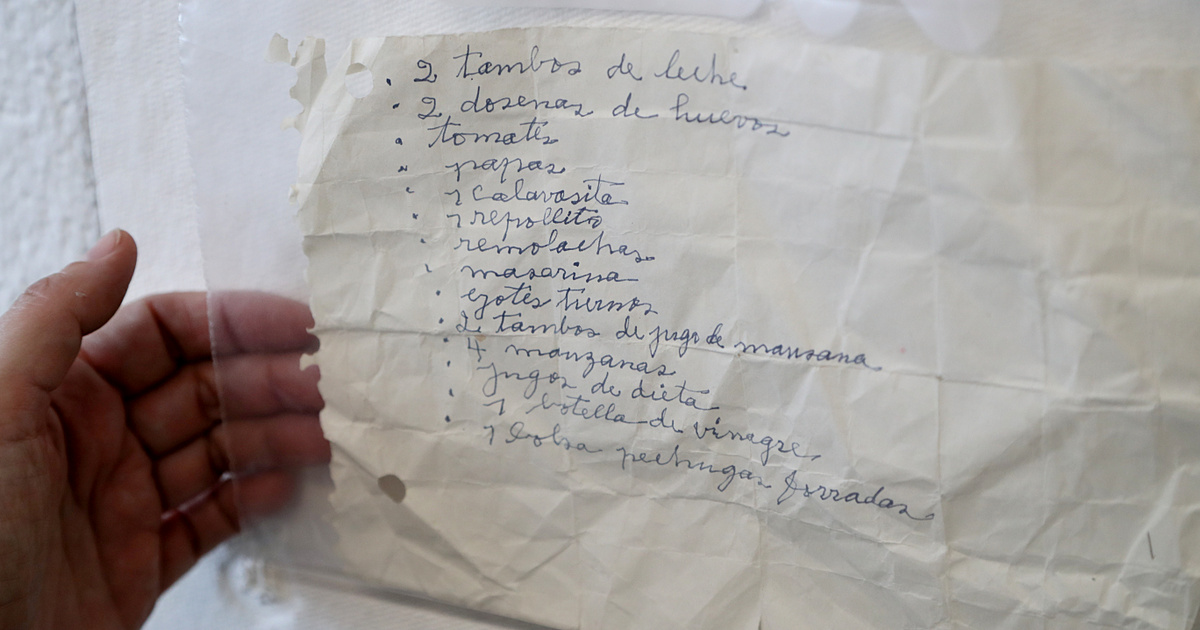 . 2 tambos de leche.
. 2 dosenas de huevos
. tomates
. papas
. 1 calavasita
. 1 repollito
. remolachas
. masarina
. ejotes tiernos
. 2 tambos de jugo de mansana
. 4 manzanas
. jugos de dieta
. 1 botella de vinagre.
. 1 bolsa pechugas forradas